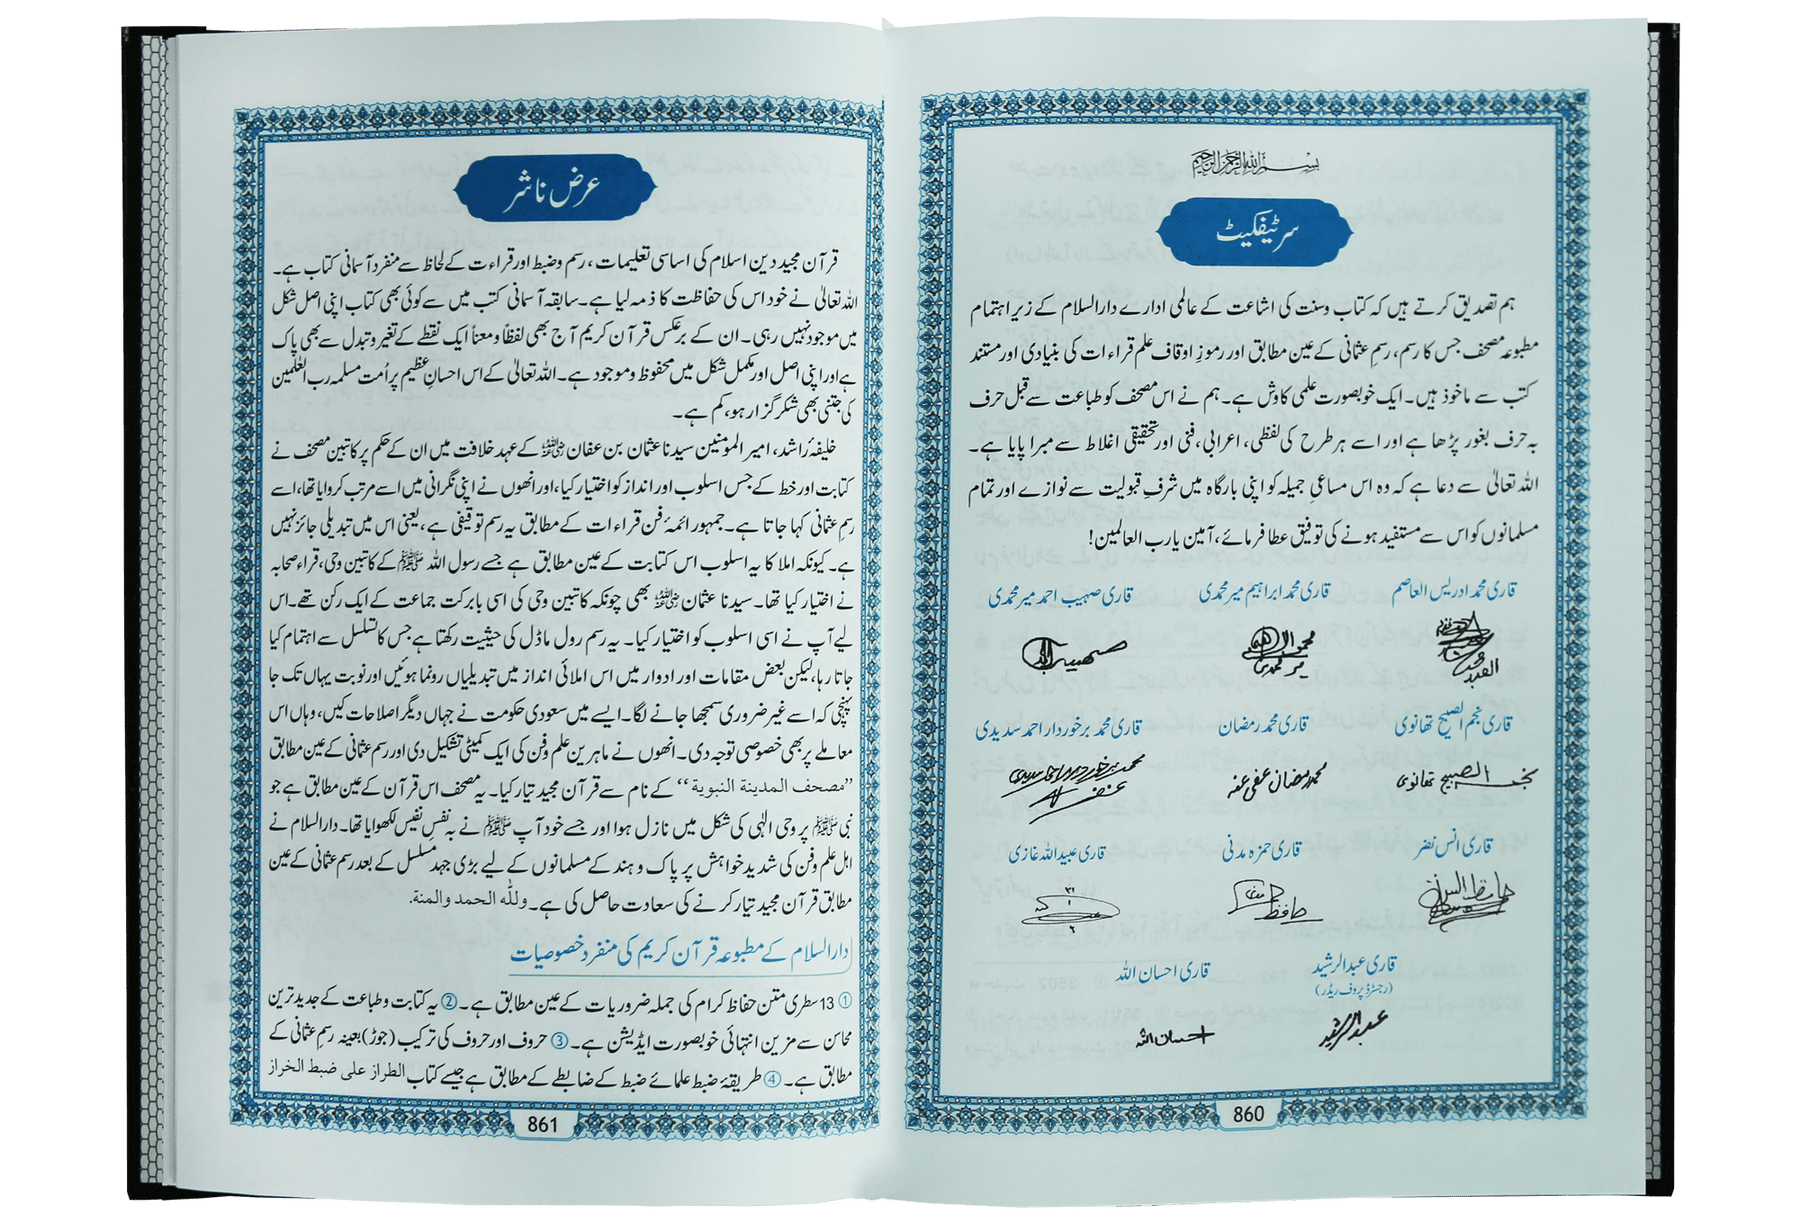 بسم اللہ الرحمن الرحیم
سرٹیفکیٹ
ہم تصدیق کرتے ہیں کہ کتاب وسنت کی اشاعت کے عالمی ادارے دارالسلام کے زیر اہتمام
مطبوعہ مصحف جس کا رسم، رسمِ عثمانی کے عین مطابق اور رموزِ اوقاف علم قراءات کی بنیادی اور مستند
کتب سے ماخوذ ہیں۔ ایک خوبصورت علمی کاوش ہے۔ ہم نے اس مصحف کو طباعت سے قبل حرف
بہ حرف بغور پڑھا ہے اور اسے ہر طرح کی لفظی، اعرابی، فنی اور تحقیقی اغلاط سے مبرا پایا ہے۔
اللہ تعالیٰ سے دعا ہے کہ وہ اس مساعیِ جمیلہ کو اپنی بارگاہ میں شرفِ قبولیت سے نوازے اور تمام
مسلمانوں کو اس سے مستفید ہونے کی توفیق عطا فرمائے، آمین یا رب العالمین!
قاری محمد ادریس العاصم قاری محمد ابراہیم میر محمدی قاری صہیب احمد میر محمدی
قاری نجم الصبیح تھانوی قاری محمد رمضان قاری محمد برخوردار احمد سدیدی
نجم الصبیح تھانوی محمد رمضان عفی عنہ
قاری انس نضر قاری حمزہ مدنی قاری عبیداللہ غازی
قاری عبدالرشید قاری احسان اللہ
(رجسٹرڈ پروف ریڈر)
عبدالرشید احسان اللہ
860
عرض ناشر
قرآن مجید دین اسلام کی اساسی تعلیمات، رسم وضبط اور قراءت کے لحاظ سے منفرد آسمانی کتاب ہے۔
اللہ تعالیٰ نے خود اس کی حفاظت کا ذمہ لیا ہے۔ سابقہ آسمانی کتب میں سے کوئی بھی کتاب اپنی اصل شکل
میں موجود نہیں رہی۔ ان کے برعکس قرآن کریم آج بھی لفظاً ومعناً ایک نقطے کے تغیر و تبدل سے بھی پاک
ہے اور اپنی اصل اور مکمل شکل میں محفوظ وموجود ہے۔ اللہ تعالیٰ کے اس احسانِ عظیم پر اُمت مسلمہ رب العلمین
کی جتنی بھی شکر گزار ہو، کم ہے۔
خلیفۂ راشد، امیر المومنین سیدنا عثمان بن عفان رضی اللہ عنہ کے عہد خلافت میں ان کے حکم پر کاتبین مصحف نے
کتابت اور خط کے جس اسلوب اور انداز کو اختیار کیا، اور انھوں نے اپنی نگرانی میں اسے مرتب کروایا تھا، اسے
رسم عثمانی کہا جاتا ہے۔ جمہور ائمۂ فن قراءات کے مطابق یہ رسم توقیفی ہے، یعنی اس میں تبدیلی جائز نہیں
ہے۔ کیونکہ املا کا یہ اسلوب اس کتابت کے عین مطابق ہے جسے رسول اللہ ﷺ کے کاتبین وحی، قراء صحابہ
نے اختیار کیا تھا۔ سیدنا عثمان رضی اللہ عنہ بھی چونکہ کاتبین وحی کی اسی بابرکت جماعت کے ایک رکن تھے۔ اس
لیے آپ نے اسی اسلوب کو اختیار کیا۔ یہ رسم رول ماڈل کی حیثیت رکھتا ہے جس کا تسلسل سے اہتمام کیا
جاتا رہا، لیکن بعض مقامات اور ادوار میں اس املائی انداز میں تبدیلیاں رونما ہوئیں اور نوبت یہاں تک جا
پہنچی کہ اسے غیر ضروری سمجھا جانے لگا۔ ایسے میں سعودی حکومت نے جہاں دیگر اصلاحات کیں، وہاں اس
معاملے پر بھی خصوصی توجہ دی۔ انھوں نے ماہرین علم وفن کی ایک کمیٹی تشکیل دی اور رسم عثمانی کے عین مطابق
”مصحف المدینة النبویة“ کے نام سے قرآن مجید تیار کیا۔ یہ مصحف اس قرآن کے عین مطابق ہے جو
نبی ﷺ پر وحی الٰہی کی شکل میں نازل ہوا اور جسے خود آپ ﷺ نے بہ نفسِ نفیس لکھوایا تھا۔ دارالسلام نے
اہل علم وفن کی شدید خواہش پر پاک و ہند کے مسلمانوں کے لیے بڑی جہد مسلسل کے بعد رسم عثمانی کے عین
مطابق قرآن مجید تیار کرنے کی سعادت حاصل کی ہے۔ وللّٰه الحمد والمنة.
دارالسلام کے مطبوعہ قرآن کریم کی منفرد خصوصیات
① 13 سطری متن حفاظ کرام کی جملہ ضروریات کے عین مطابق ہے۔ ② یہ کتابت و طباعت کے جدید ترین
محاسن سے مزین انتہائی خوبصورت ایڈیشن ہے۔ ③ حروف اور حروف کی ترکیب (جوڑ) بعینہ رسم عثمانی کے
مطابق ہے۔ ④ طریقۂ ضبط علمائے ضبط کے ضابطے کے مطابق ہے جیسے کتاب الطراز علی ضبط الخراز
861